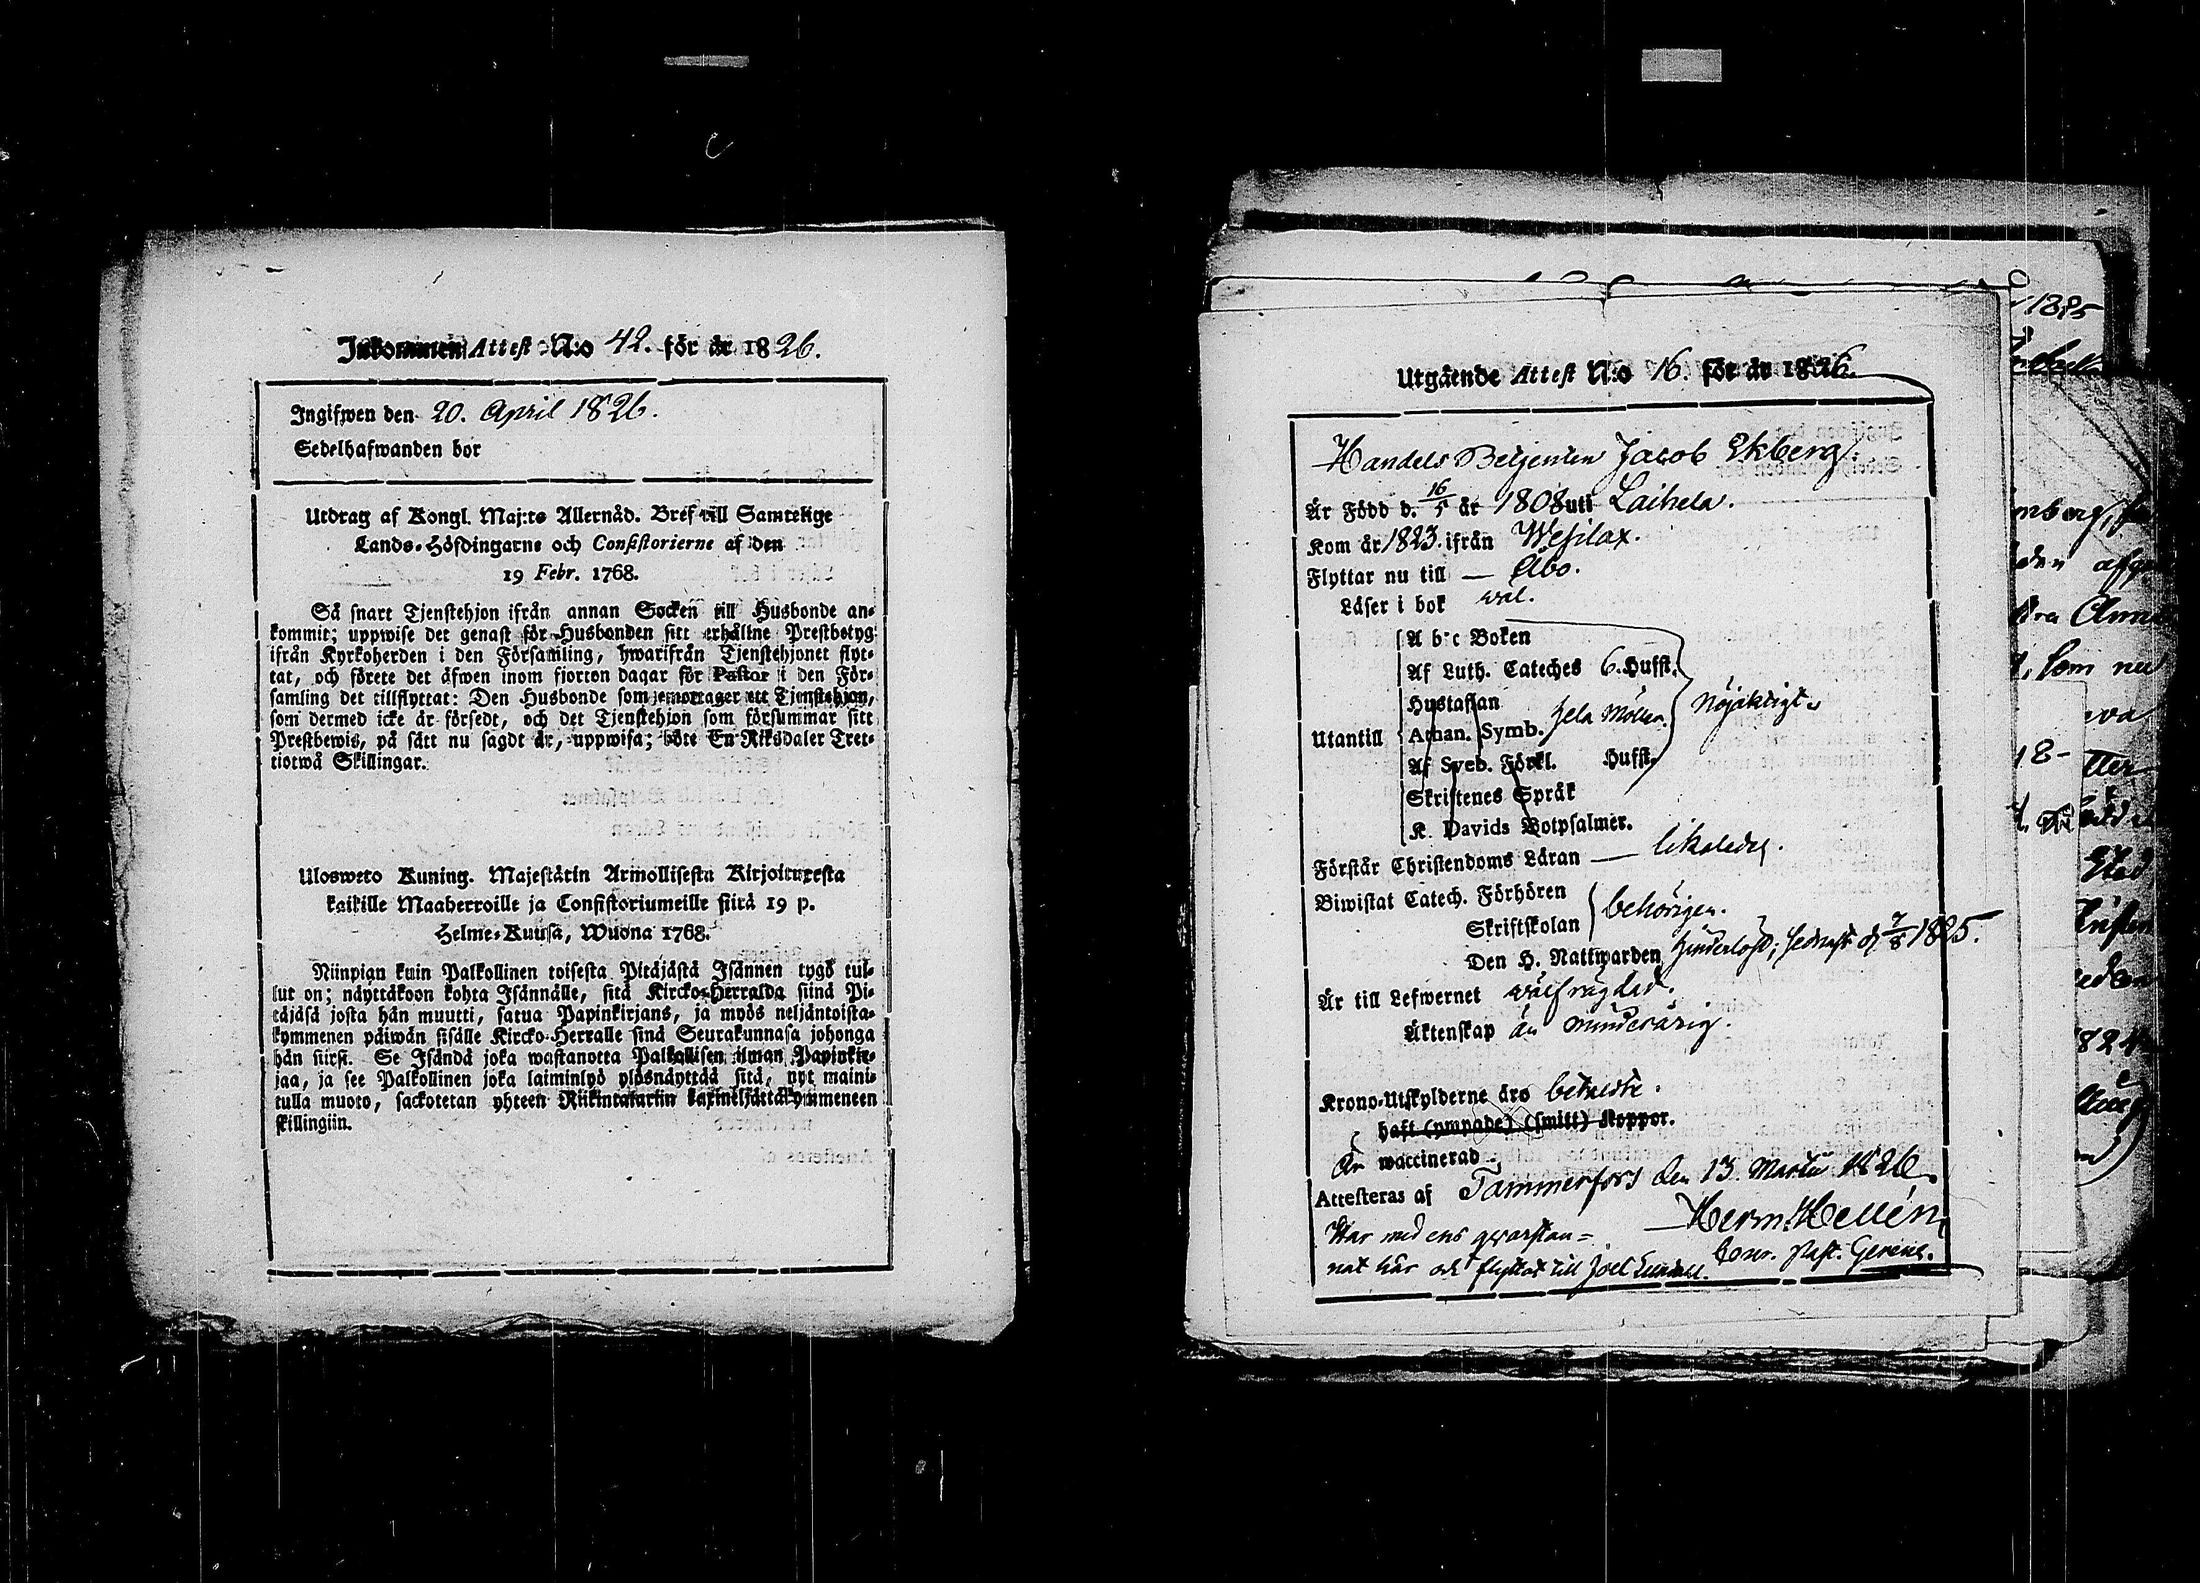 Inkommen Attest N:o 42. för år 1826.
Ingifwen den 20. April 1826.
Sedelhafwanden bor
Utdrag af Kongl. Maj:ts Allernåd. Bref till Samtelige
Lands-Höfdingarne och Consistorierne af den
19 Febr. 1768.
Så snart Tjenstehjon ifrån annan Socken till Husbonde an-
kommit; uppwise det genast för Husbonden sitt erhållne Prestbetyg
ifrån Kyrkoherden i den Församling, hwarifrån Tjenstehjonet flyt-
tat, och förete det äfwen inom fjorton dagar för Pastor i den För-
samling det tillflyttat: Den Husbonde som emottager ett Tjenstehjon,
som dermed icke är försedt, och det Tjenstehjon som försummar sitt
Prestbewis, på sätt nu sagdt är, uppwisa; böte En Riksdaler Tret-
tiotwå Skillingar.
Ulosweto Kuning. Majestätin Armollisesta Kirjoituxesta
kaikille Maaherroille ja Consistoriumeille siitä 19 p.
Helme-Kuusa, Wuona 1768.
Niinpian kuin Palkollinen toisesta Pitäjästä Isännen tygö tul-
lut on; näyttäkoon kohta Isännälle, sitä Kircko-Herralda siinä Pi-
täjäsä josta hän muutti, saatua Papinkirjans, ja myös neljäntoista-
kymmenen päiwän sisälle Kircko-Herralle siinä Seurakunnasa johonga
hän siirsi. Se Isändä joka wastanotta Palkollisen ilman Papinkir-
jaa, ja see Palkollinen joka laiminlyö ylösnäyttää sitä, nyt maini-
tulla muoto, sackotetan yhteen Riikintalariin kaxineljättäkymmeneen
skillingiin.
Utgående Attest N:o 16. för år 1826.
Handels Betjenten Jacob Ekberg.
Är Född d. 16/5 år 1808 uti Laihela.
Kom år 1823. ifrån Wesilax.
Flyttar nu till — Åbo.
Läser i bok wäl.
A b c Boken
Af Luth. Cateches 6. Hufst.
Hustaflan
Utantill Athan. Symb. hela nöjaktigt.
Af Sveb. Förkl. Hufst.
Skriftenes Språk
K. Davids Botpsalmer.
Förstår Christendoms Läran — likaledes.
Biwistat Catech. Förhören
Skriftskolan behörigen.
Den H. Nattwarden hinderlöst; sednast d. 7/8 1825.
Är till Lefwernet wälfrägdad.
Äktenskap än minderårig.
Krono-Utskylderne äro betalde.
haft (ympade) (smitt) Koppor.
Är waccinerad.
Attesteras af Tammerfors den 13. Martii 1826.
Herm. Hellén
Har med ens qwarstan=
nat här och flyttat till Joel
Past.